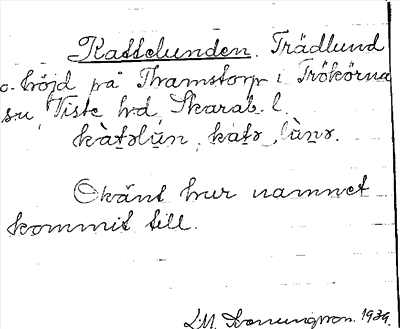 Kattelunden. Trädlund
o. höjd på Thamstorp i Trökörna
su, Viste hd, Skarab. l.
kàtəlūn, kàtə, lùnə.
Okänt hur namnet
kommit till.
1939.